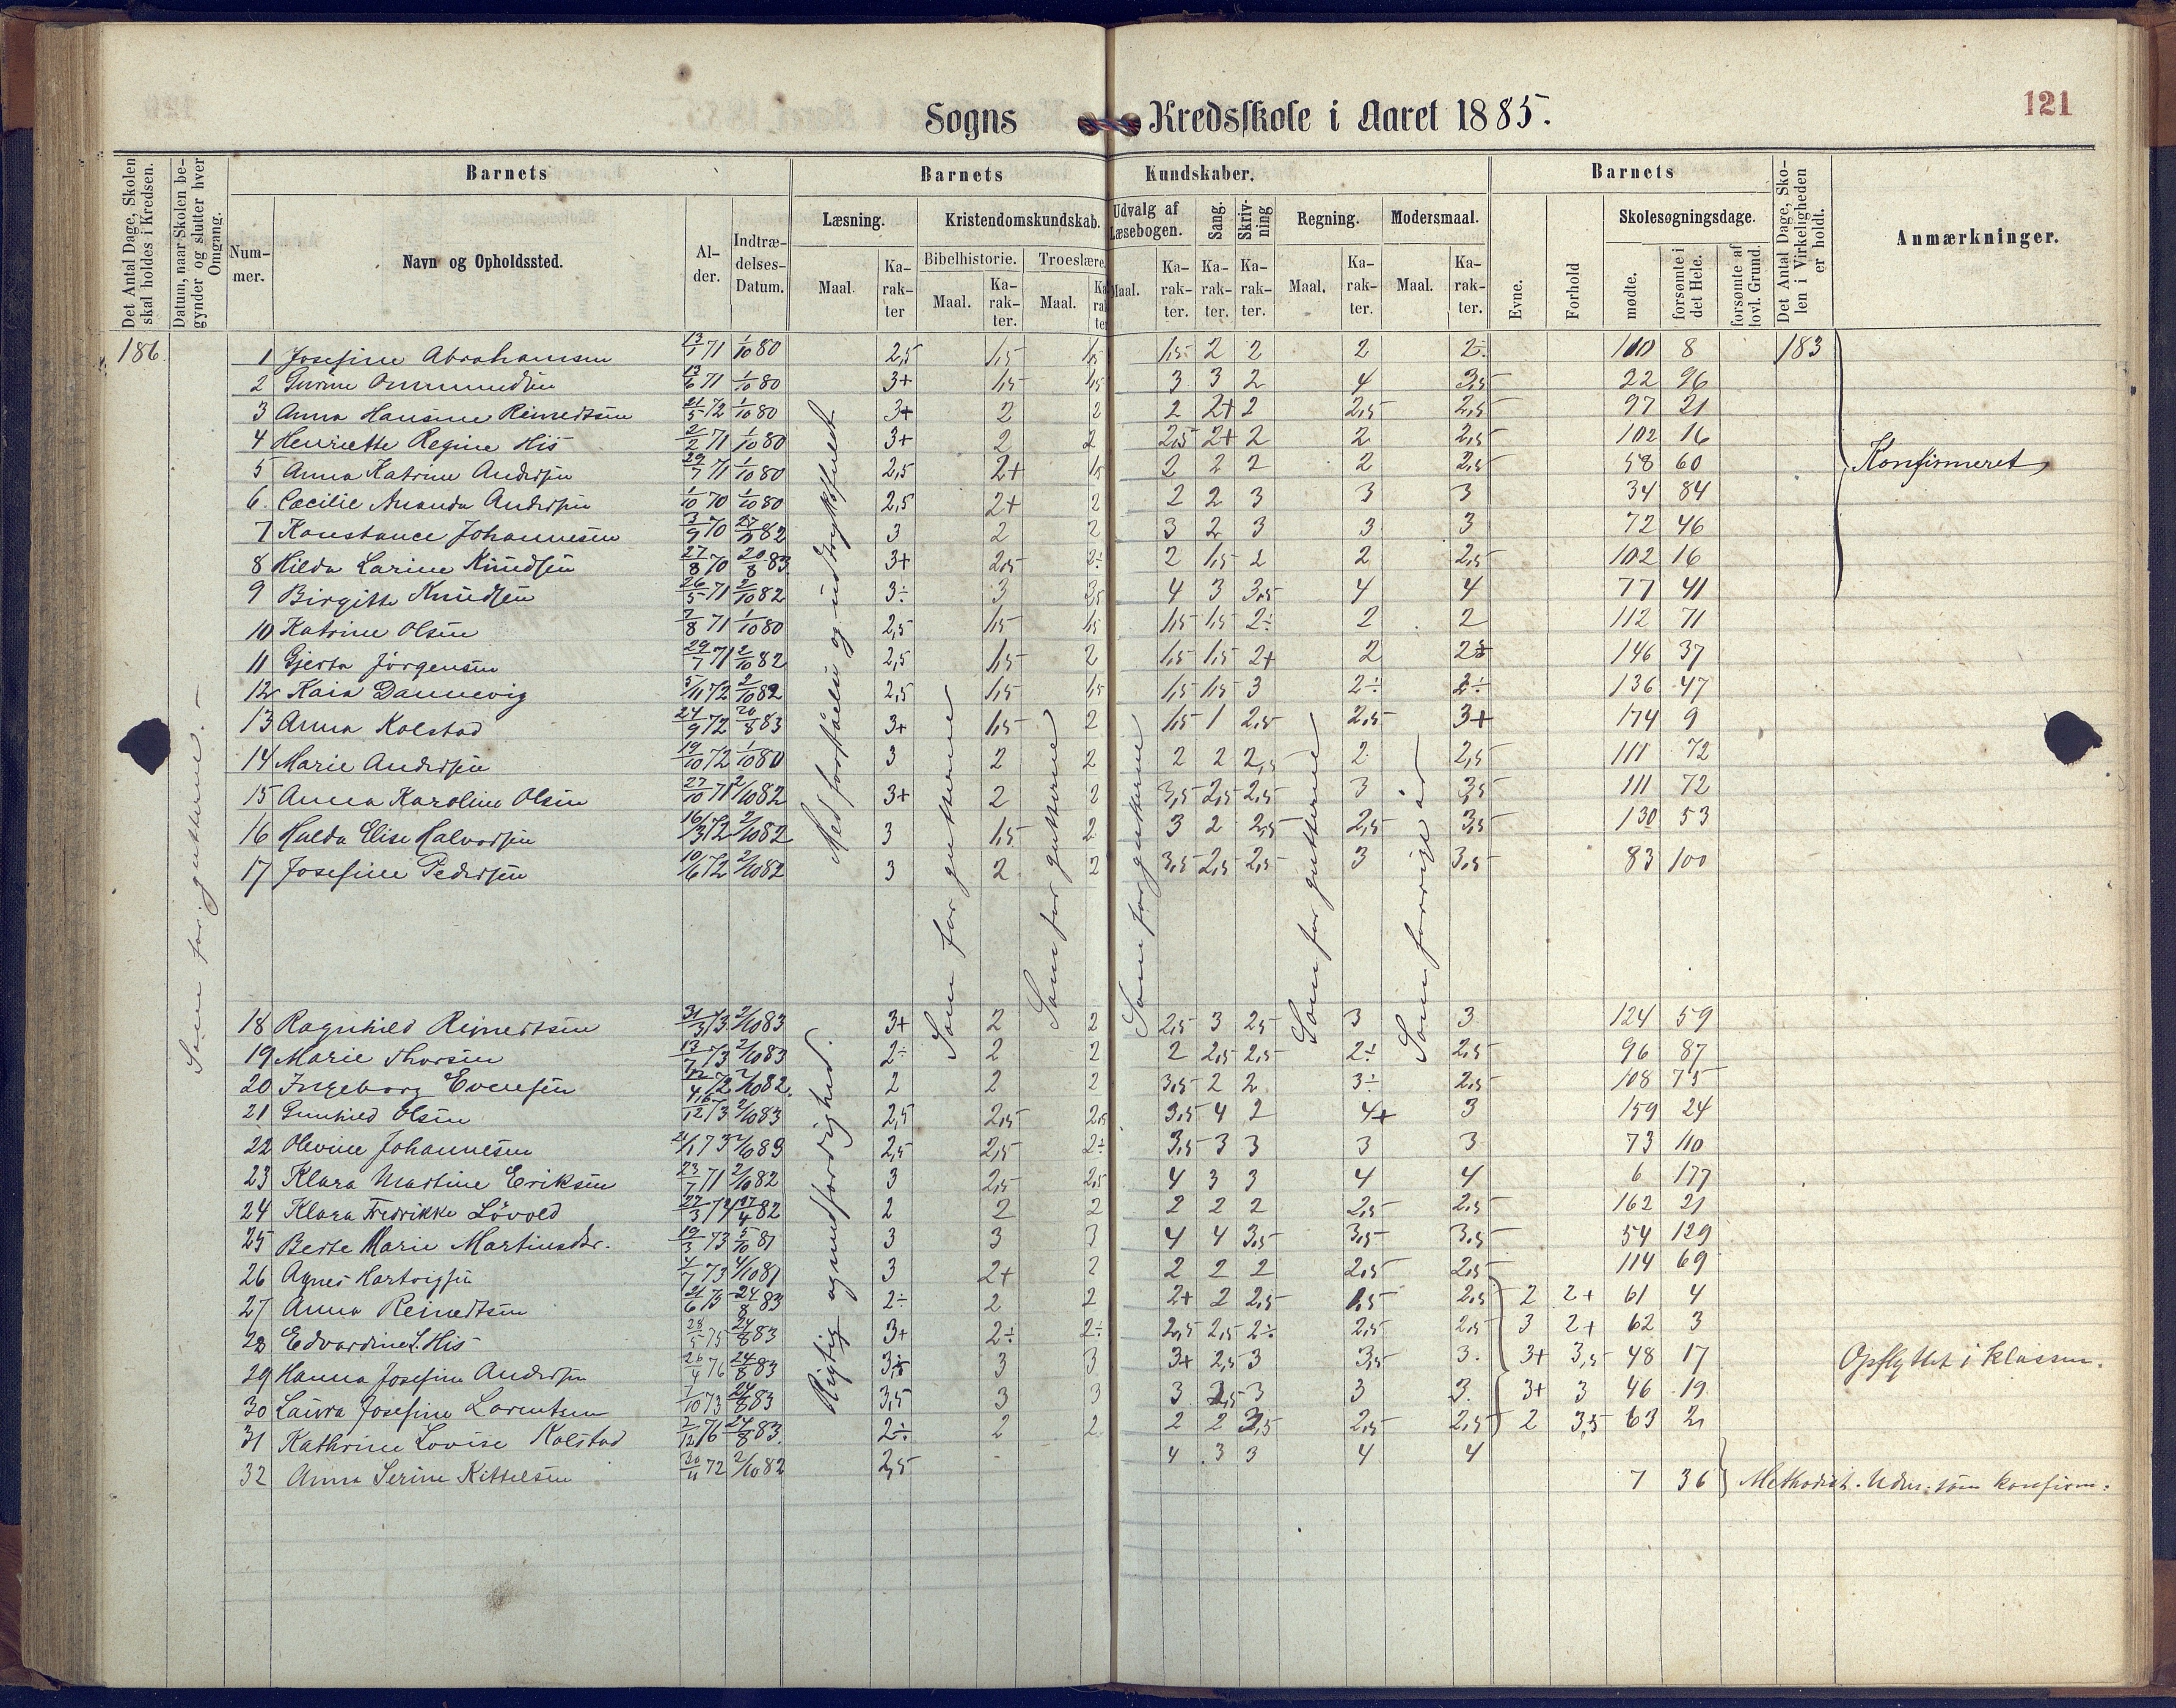 121
Sogns Kredsskole i Aaret 1885.
Det Antal Dage, Skolen skal holdes i Kredsen.
Datum, naar Skolen begynder og slutter hver Omgang.
Barnets
Barnets
Kundskaber.
Barnets
Det Antal Dage, Skolen i Virkeligheden er holdt.
Anmærkninger.
Nummer.
Navn og Opholdssted.
Alder.
Indtrædelses-Datum.
Læsning.
Kristendomskundskab.
Udvalg af Læsebogen.
Sang.
Skrivning
Regning.
Modersmaal.
Evne.
Forhold
Skolesøgningsdage.
Bibelhistorie.
Troeslære.
mødte.
forsømte i det Hele.
forsømte af lovl. Grund.
Maal.
Karakter
Maal.
Karakter.
Maal.
Karakter
Maal.
Karakter.
Karakter.
Karakter.
Maal.
Karakter.
Maal.
Karakter.
186.
183
Som forrig gutterne. –
Med forståelse og udtryksfuldt
Rigtig og med færdighed.
Som for gutterne
Som for gutterne
Som for gutterne
Som for gutterne
Som forrige år
1 Josefine Abrahamsen 13/1 71 1/10 80 2,5 1,5 1,5 1,5 2 2 2 2÷ 110 8
2 Gurine Ommundsen 13/6 71 1/10 80 3+ 1,5 1,5 3 3 2 4 3,5 22 96
3 Anna Hansine Reinertsen 21/5 72 1/10 80 3+ 2 2 2 2+ 2 2,5 2,5 97 21
4 Henriette Regine His 2/2 71 1/10 80 3+ 2 2 2,5 2+ 2 2 2,5 102 16
5 Anna Katrine Andersen 29/7 71 1/10 80 2,5 2+ 1,5 2 2 2 2 2,5 58 60 Konfirmeret
6 Cæcilie Amanda Andersen 1/10 70 1/10 80 2,5 2+ 2 2 2 3 3 3 34 84
7 Konstance Johannesen 3/9 70 82 3 2 2 3 2 3 3 3 72 46
8 Hilda Larine Knudsen 27/8 70 20/8 83 3+ 2,5 2÷ 2 1,5 2 2 2,5 102 16
9 Birgitte Knudsen 26/5 71 2/10 82 3÷ 3 3,5 4 3 3,5 4 4 77 41
10 Katrine Olsen 7/8 71 1/10 80 2,5 1,5 1,5 1,5 1,5 2÷ 2 2 112 71
11 Gjerta Jörgensen 29/7 71 2/10 82 2,5 1,5 2 1,5 1,5 2+ 2 2÷ 146 37
12 Kaia Dannevig 5/11 72 2/10 82 2,5 1,5 1,5 1,5 1,5 3 2÷ 2÷ 136 47
13 Anna Kolstad 24/9 72 20/8 83 3+ 1,5 2 1,5 1 2,5 2,5 3+ 174 9
14 Marie Andersen 19/10 72 1/10 80 3 2 2 2 2 2,5 2 2,5 111 72
15 Anna Karoline Olsen 27/10 71 2/10 82 3+ 2 2 3,5 2,5 2,5 3 3,5 111 72
16 Hulda Elise Halvorsen 16/3 72 2/10 82 3 1,5 2 3 2 2,5 2,5 3,5 130 53
17 Josefine Pedersen 10/6 72 2/10 82 3 2 2 3,5 2,5 2,5 3 3,5 83 100
18 Ragnhild Reinertsen 31/3 73 2/10 83 3+ 2 2 2,5 3 2,5 3 3 124 59
19 Marie Thorsen 13/7 73 2/10 83 2÷ 2 2 2 2,5 2,5 2÷ 2,5 96 87
20 Ingeborg Evensen 12/4 72 2/10 82. 2 2 2 3,5 2 2 3÷ 2,5 108 75
21 Gunhild Olsen 16/12 73 2/10 83 2,5 2,5 2,5 3,5 4 2 4+ 3 159 24
22 Olevine Johannesen 21/1 73 2/10 83 2,5 2,5 2÷ 3,5 3 3 3 3 73 110
23 Klara Martine Eriksen 23/7 71 2/10 82 3 2,5 2,5 4 3 3 4 4 6 177
24 Klara Fredrikke Lövold 27/3 74 17/4 82 2 2 2 2 2 2 2,5 2,5 162 21
25 Berte Marie Martinsdtr. 19/3 73 5/10 81 3 3 3 4 4 3,5 3,5 3,5 54 129
26 Agnes Hartvigsen 4/7 73 4/10 81 3 2+ 2 2 2 2 2,5 2,5 114 69
27 Anna Reinertsen 21/6 75 24/8 83 2÷ 2 2 2+ 2 2,5 1,5 2,5 2 2+ 61 4
28 Edvardine L. His 28/5 75 24/8 83 3+ 2÷ 2÷ 2,5 2,5 2÷ 2,5 2,5 3 2+ 62 3
29 Hanna Josefine Andersen 26/4 76 24/8 83 3 3 3+ 2,5 3 3,5 3. 3+ 3,5 48 17 Opflyttet i klassen.
30 Laura Josefine Lorentsen 7/10 73 24/8 83 3,5 3 3 3 2,5 3 3 3. 3+ 3 46 19
31 Kathrine Lovise Kolstad 2/12 76 24/8 83. 2÷ 2 2 2 2 3,5 2,5 2,5 2 3,5 63 2
32 Anna Serine Kittelsen 30/11 72 2/10 82 2,5 - 4 3 3 4 4 7 36 Methodist. Udm. som konfirm.